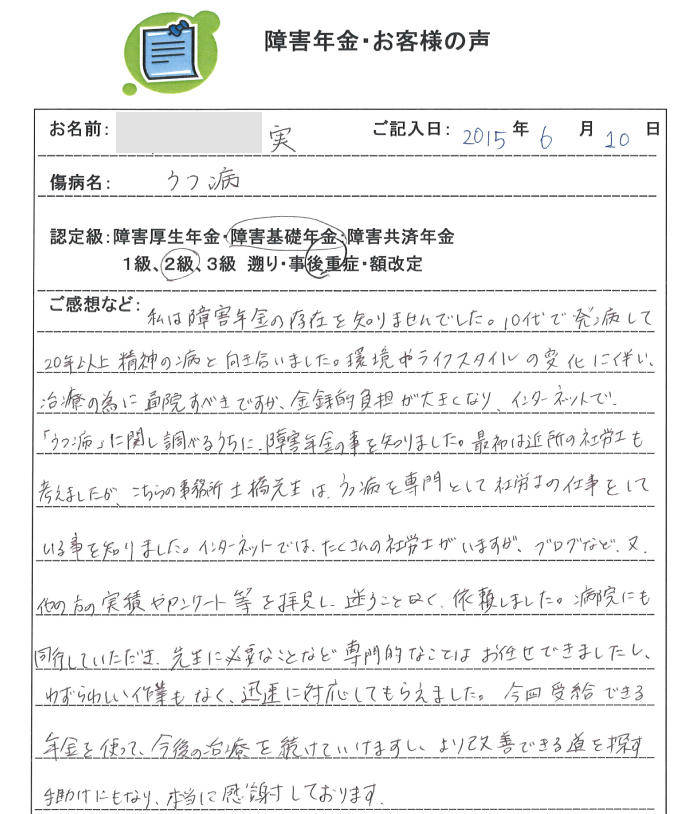 障害年金・お客様の声
お名前: 実 ご記入日: 2015 年 6 月 10 日
傷病名: うつ病
認定級:障害厚生年金・障害基礎年金・障害共済年金
1級、2級、3級 遡り・事後重症・額改定
ご感想など: 私は障害年金の存在を知りませんでした。10代で発病して
20年以上精神の病と向き合いました。環境やライフスタイルの変化に伴い、
治療の為に通院すべきですが、金銭的負担が大きくなり、インターネットで
「うつ病」に関し調べるうちに、障害年金の事を知りました。最初は近所の社労士も
考えましたが、こちらの事務所土橋先生は、うつ病を専門として社労士の仕事をして
いる事を知りました。インターネットでは、たくさんの社労士がいますが、ブログなど、又、
他の方の実積やアンケート等を拝見し、迷うことなく、依頼しました。病院にも
同行していただき、先生に必要なことなど専門的なことはお任せできましたし、
わずらわしい作業もなく、迅速に対応してもらえました。今回受給できる
年金を使って、今後の治療を続けていけますし、より改善できる道を探す
手助けにもなり、本当に感謝しております。